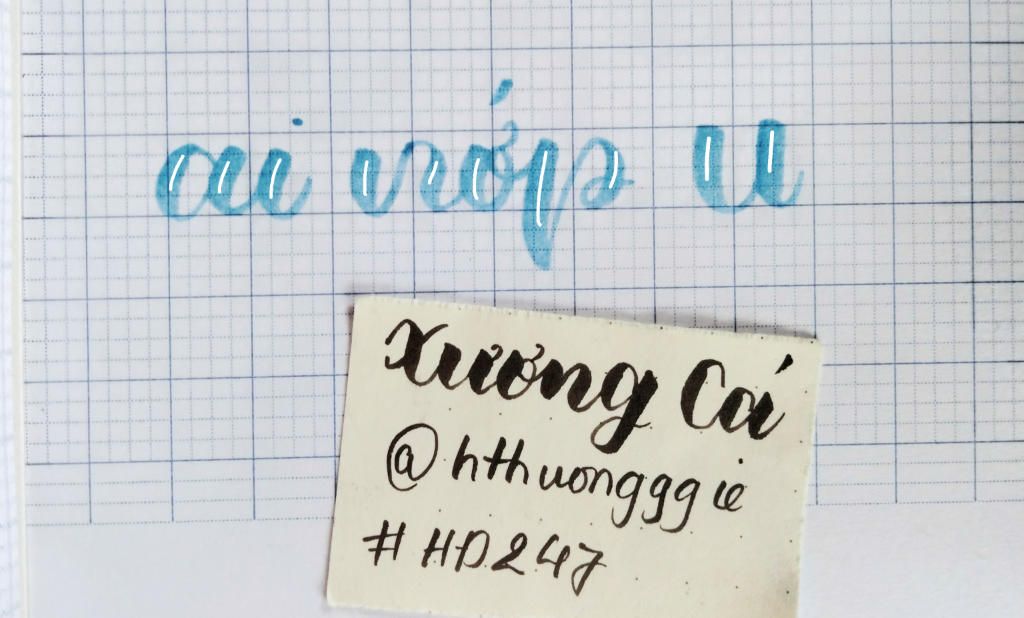 ai rớp u
Xương Cá
@hthuongggie
#HD247